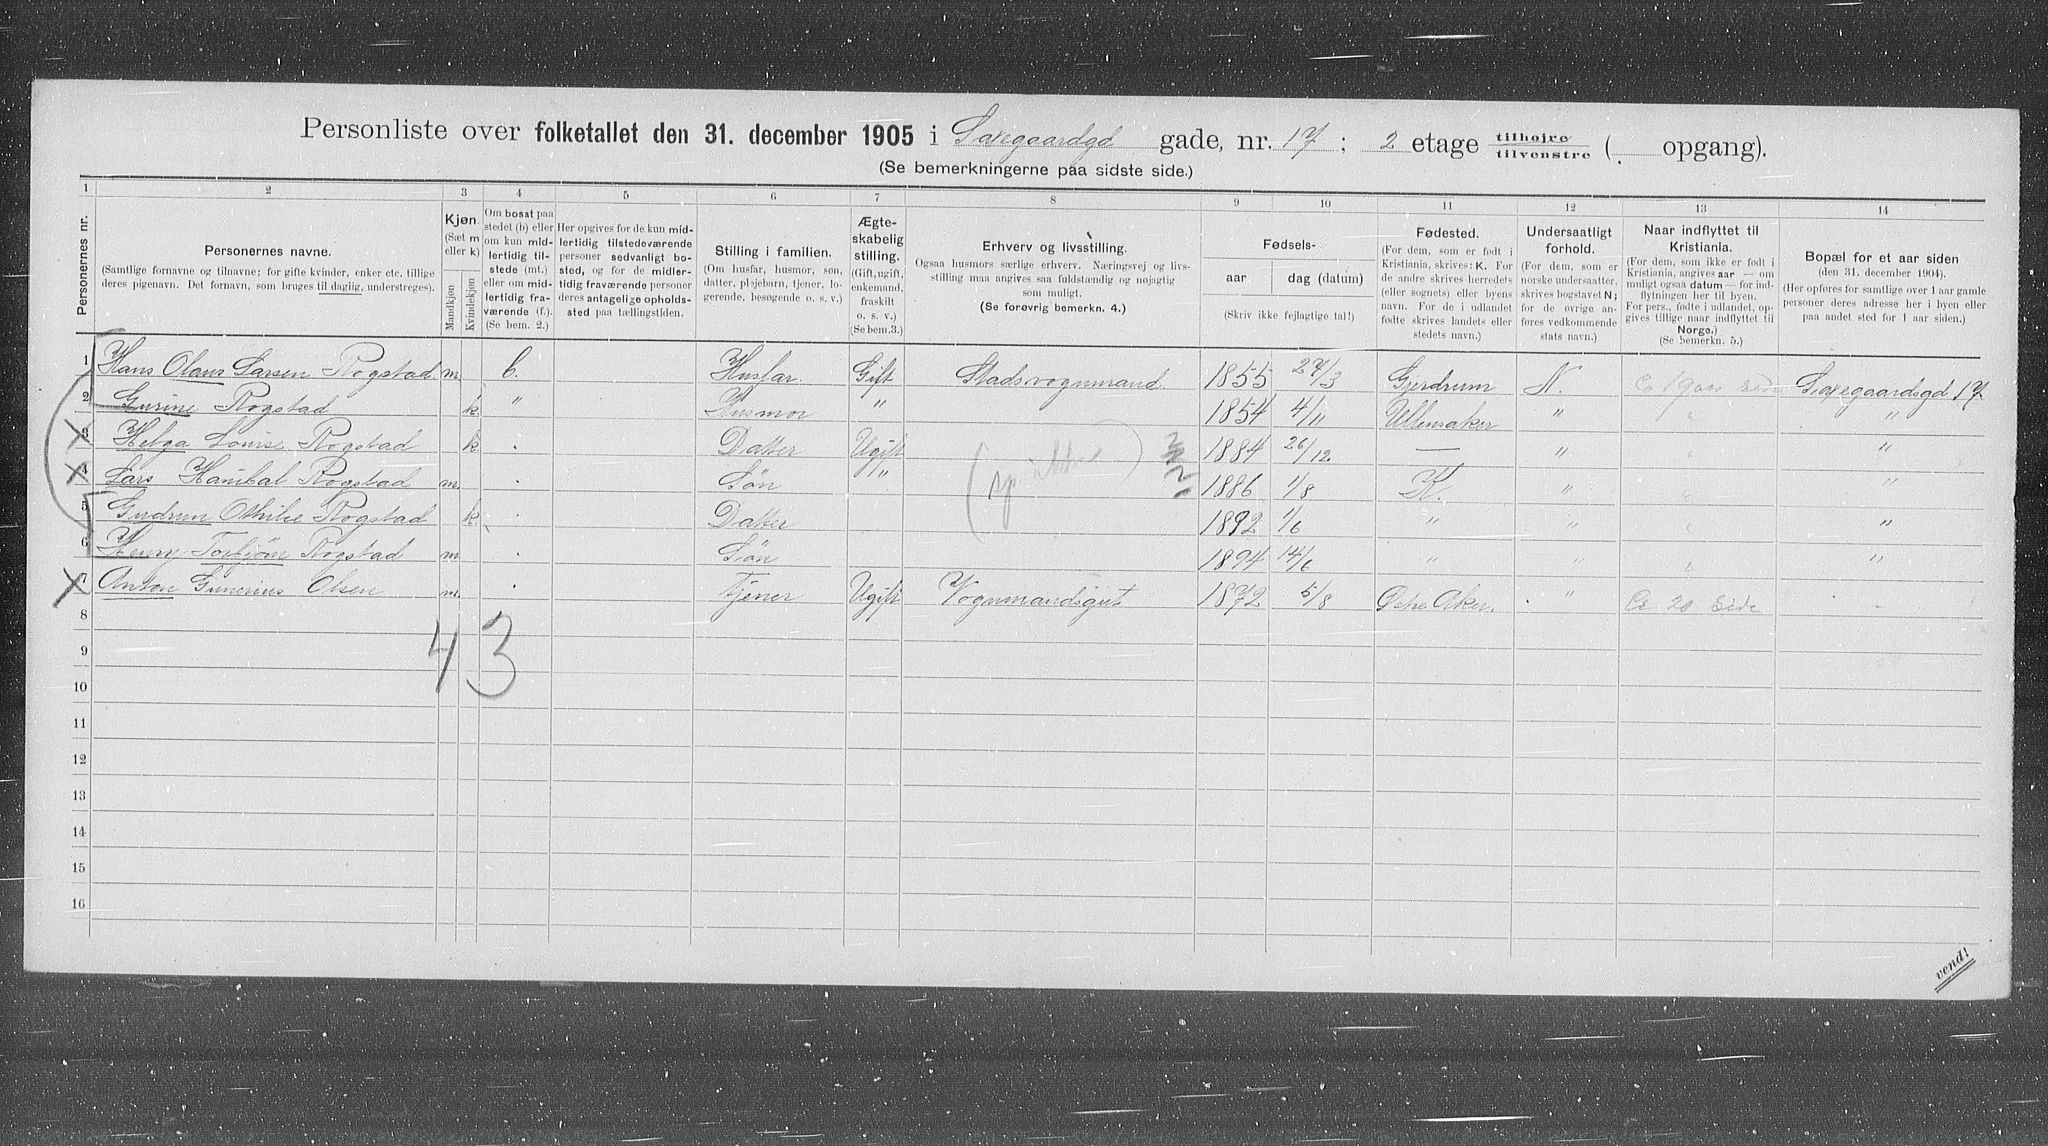 Personliste over folketallet den 31. december 1905 i Saxegaardgd gade, nr. 17; 2 etage tilhøjre / tilvenstre ( opgang).
(Se bemerkningerne paa sidste side.)
1 2 3 4 5 6 7 8 9 10 11 12 13 14
Personernes nr.
Personernes navne.
(Samtlige fornavne og tilnavne; for gifte kvinder, enker etc. tillige deres pigenavn. Det fornavn, som bruges til daglig, understreges).
Kjøn.
(Sæt m eller k)
Mandkjøn
Kvindekjøn
Om bosat paa stedet (b) eller om kun midlertidig tilstede (mt.) eller om midlertidig fraværende (f.) (Se bem. 2.)
Her opgives for de kun midlertidig tilstedeværende personer sedvanlig bosted, og for de midlertidig fraværende personer deres antagelige opholdssted paa tællingstiden.
Stilling i familien.
(Om husfar, husmor, søn, datter, plejebarn, tjener, logerende, besøgende o. s. v.)
Ægteskabelig stilling.
(Gift, ugift, enkemand, fraskilt o. s. v.)
(Se bem. 3.)
Erhverv og livsstilling.
Ogsaa husmors særlige erhverv. Næringsvej og livsstilling maa angives saa fuldstændig og nøjagtig som muligt.
(Se forøvrig bemerkn. 4.)
Fødsels-
aar
dag (datum)
(Skriv ikke fejlagtige tal!)
Fødested.
(For dem, som er født i Kristiania, skrives: K. For de andre skrives herredets (eller sognets) eller byens navn. For de i udlandet fødte skrives landets eller stedets navn.)
Undersaatligt forhold.
(For dem, som er norske undersaatter, skrives bogstavet N; for de øvrige anføres vedkommende stats navn.)
Naar indflyttet til Kristiania.
(For dem, som ikke er født i Kristiania, angives aar — om muligt ogsaa datum — for indflytningen her til byen. For pers., fødte i udlandet, opgives tillige naar indflyttet til Norge.)
(Se bemerkn. 5.)
Bopæl for et aar siden
(den 31. december 1904).
(Her opføres for samtlige over 1 aar gamle personer deres adresse her i byen eller paa andet sted for 1 aar siden.)
1 Hans Olaus Larsen Rogstad m b. Husfar Gift Stadsvognmand 1855 27/3 Gjerdrum N. Saxegaardsgd 17.
2 Gurine Rogstad k. " Husmor " 1854 4/11 Ullensaker " " "
3 Helga Louise Rogstad k . Datter Ugift 1884 26/12 — " "
4 Lars Hanibal Rogstad m. . Søn " 1886 1/8 K. " "
5 Gudrun Othilie Rogstad k. . Datter 1892 1/6 " " "
6 Henry Torbjørn Rogstad m . Søn 1894 14/6 " " "
7 Anton Gunerius Olsen m. . Tjener Ugift Vognmandsgut 1872 5/8 Østre Aker. " Ca 20 side
8
9
10
11
12
13
14
15
16
4 3
vend!